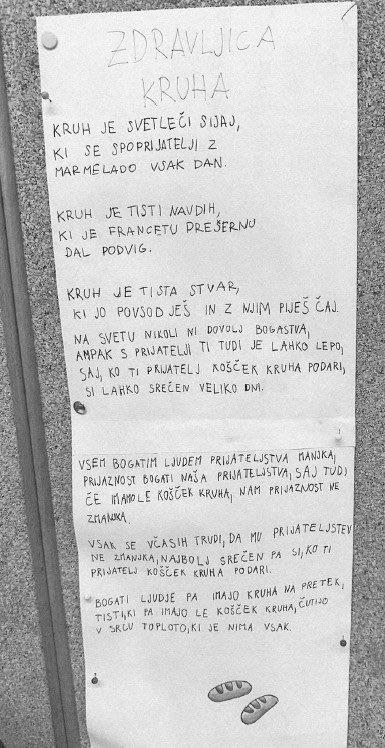 ZDRAVLJICA
KRUHA
KRUH JE SVETLEČI SIJAJ,
KI SE SPOPRIJATELJI Z
MARMELADO VSAK DAN.
KRUH JE TISTI NAVDIH,
KI JE FRANCETU PREŠERNU
DAL PODVIG.
KRUH JE TISTA STVAR,
KI JO POVSOD JEŠ IN Z NJIM PIJEŠ ČAJ.
NA SVETU NIKOLI NI DOVOLJ BOGASTVA,
AMPAK S PRIJATELJI TI TUDI JE LAHKO LEPO,
SAJ, KO TI PRIJATELJ KOŠČEK KRUHA PODARI,
SI LAHKO SREČEN VELIKO DNI.
VSEM BOGATIM LJUDEM PRIJATELJSTVA MANJKA,
PRIJAZNOST BOGATI NAŠA PRIJATELJSTVA, SAJ TUDI,
ČE IMAMO LE KOŠČEK KRUHA, NAM PRIJAZNOST NE
ZMANJKA.
VSAK SE VČASIH TRUDI, DA MU PRIJATELJSTEV
NE ZMANJKA, NAJBOLJ SREČEN PA SI, KO TI
PRIJATELJ KOŠČEK KRUHA PODARI.
BOGATI LJUDJE PA IMAJO KRUHA NA PRETEK,
TISTI, KI PA IMAJO LE KOŠČEK KRUHA, ČUTIJO
V SRCU TOPLOTO, KI JE NIMA VSAK.